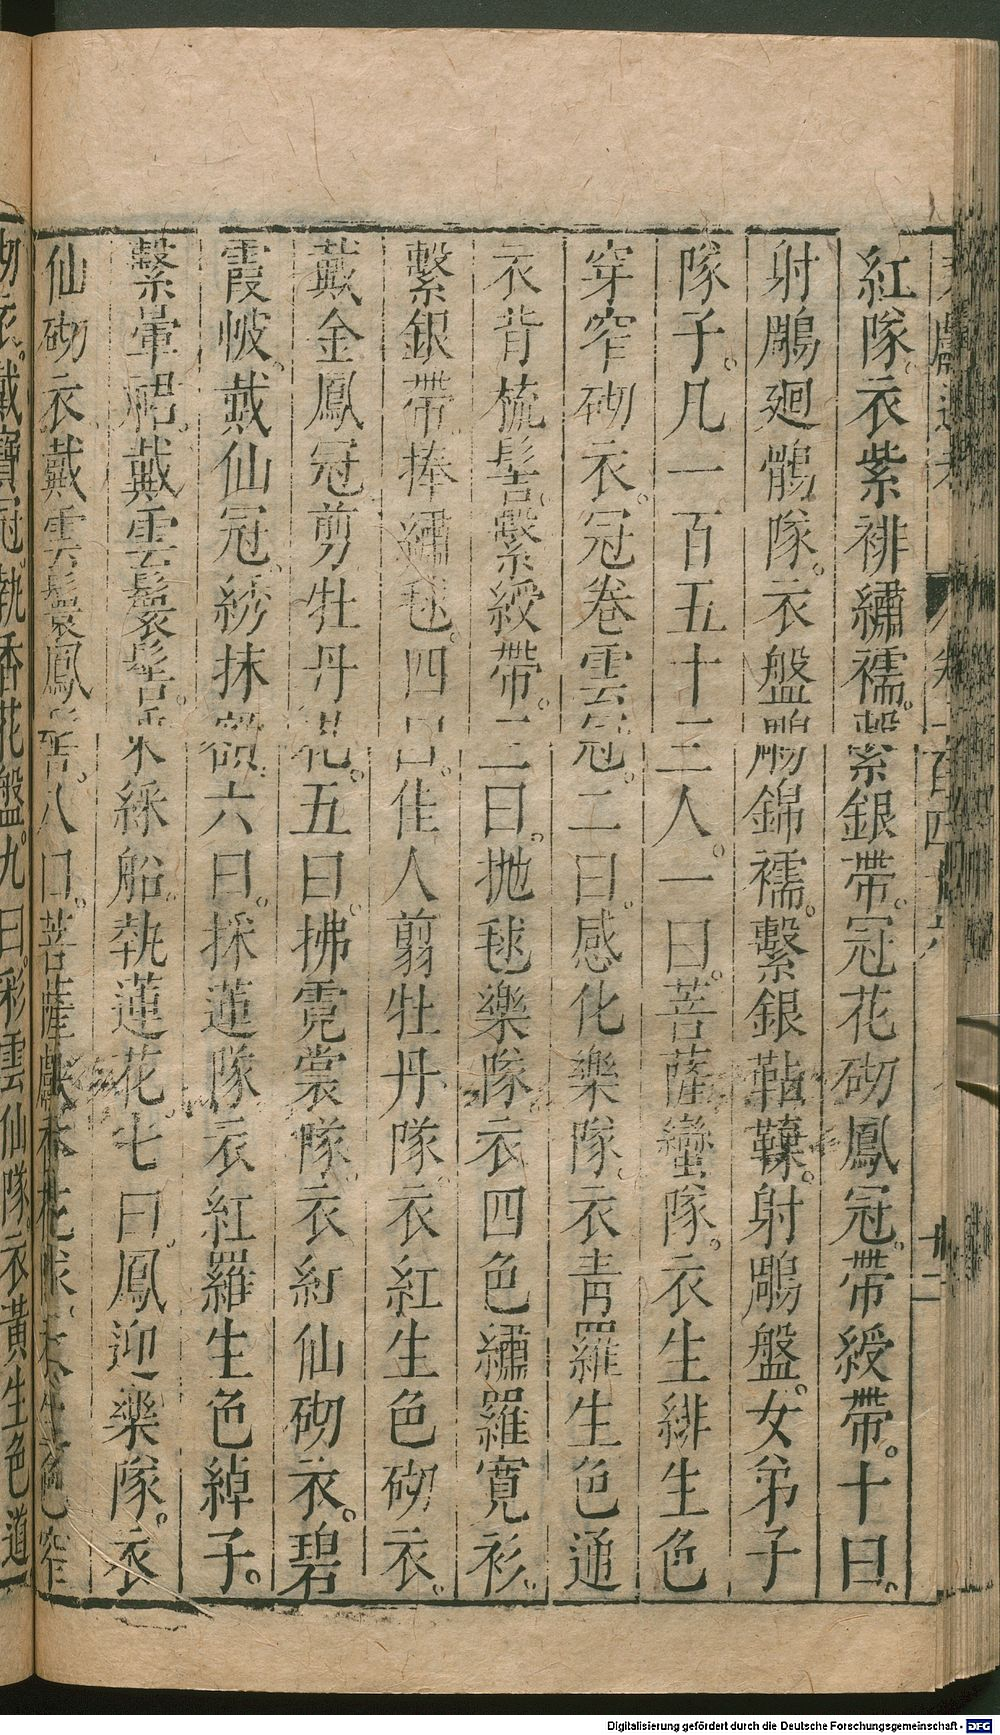 紅隊。衣紫緋繡襦。繫銀帶。冠花砌鳳冠。帶綬帶。十曰。
射鵰廻鶻隊。衣盤鵰錦襦。繫銀鞊鞢。射鵰盤。女弟子
隊子。凡一百五十三人。一曰。菩薩蠻隊。衣生緋生色
穿窄砌衣。冠卷雲冠。二曰感化樂隊。衣靑羅生色通
衣背梳髻。繫綬帶。三曰。抛毬樂隊。衣四色繡羅寛衫。
繫銀帶捧繡毬。四曰。佳人翦牡丹隊。衣紅生色砌衣。
戴金鳳冠剪牡丹花。五曰拂霓裳隊。衣紅仙砌衣。碧
霞帔。戴仙冠。綉抹額。六曰。採蓮隊衣紅羅生色綽子。
繫暈裙。戴雲鬟髻。乘綵船。執蓮花。七曰。鳳迎樂隊。衣
仙砌衣戴雲鬟鳳髻。八曰。菩薩獻香花隊。衣生色窄
砌衣。戴寶冠。執香花盤。九曰。彩雲仙隊。衣黃生色道
Digitalisierung gefördert durch die Deutsche Forschungsgemeinschaft - DFG